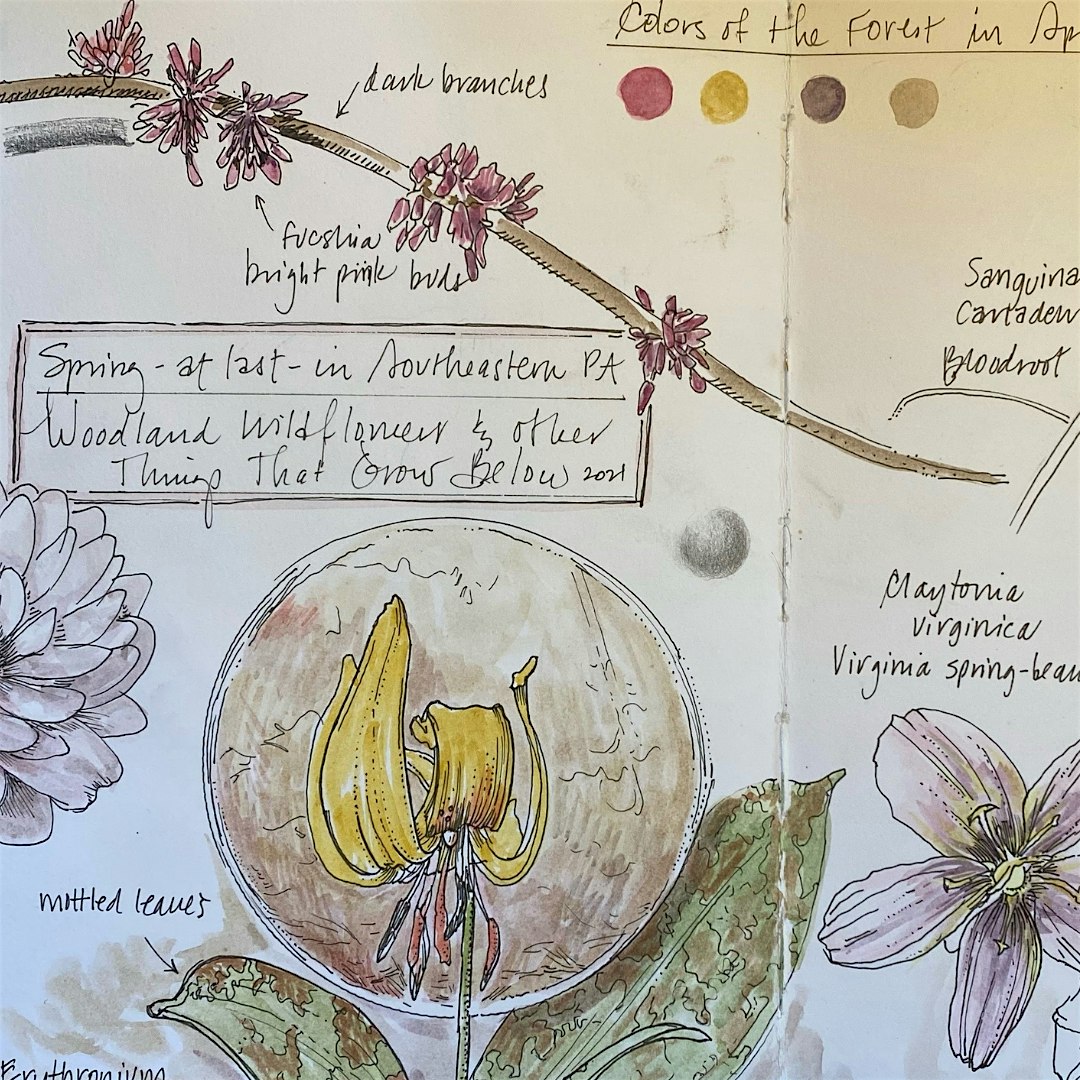 Colors of the Forest in Ap
dark branches
fucshia
bright pink buds
Sanguina
Canaden
Bloodroot
Spring - at last - in Southeastern PA
Woodland Wildflower & other
Things That Grow Below 2021
Claytonia
virginica
Virginia spring-beau
mottled leaves
Erythronium